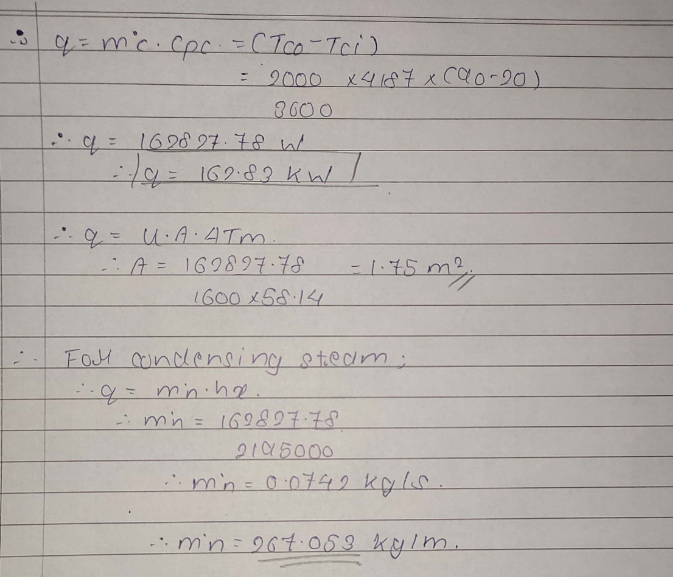 ∴ q = ṁc · Cpc · = (Tco - Tci)
= 2000 × 4187 × (90-20)
3600
∴ q = 162827.78 W
∴ q = 162.83 KW
∴ q = U·A·ΔTm.
∴ A = 162827.78 = 1.75 m²
1600 × 58.14
∴ For condensing steam;
∴ q = ṁh·hx.
∴ ṁh = 162827.78
2195000
∴ ṁh = 0.0742 kg/s.
∴ ṁh = 267.053 kg/m.